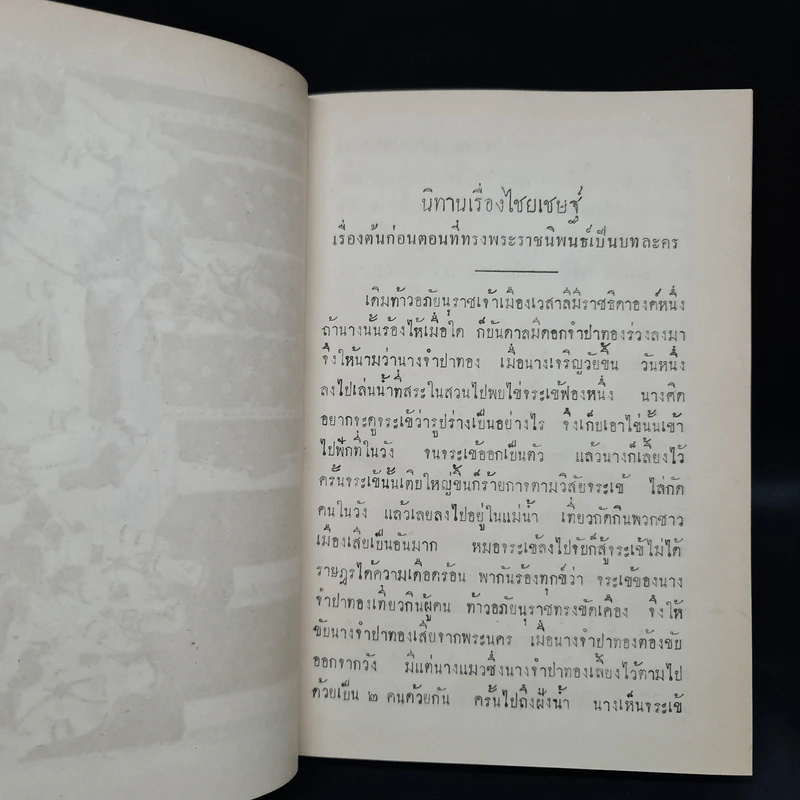 นิทานเรื่องไชยเชษฐ์
เรื่องต้นก่อนตอนที่ทรงพระราชนิพนธ์เป็นบทละคร
เดิมท้าวอภัยนุราชเจ้าเมืองเวสาลีมีราชธิดาองค์หนึ่ง
ถ้านางนั้นร้องไห้เมื่อใด ก็บันดาลมีดอกจำปาทองร่วงลงมา
จึงให้นามว่านางจำปาทอง เมื่อนางเจริญวัยขึ้น วันหนึ่ง
ลงไปเล่นน้ำที่สระในสวนไปพบไข่จระเข้ฟองหนึ่ง นางคิด
อยากจะดูจระเข้ว่ารูปร่างเป็นอย่างไร จึงเก็บเอาไข่นั้นเข้า
ไปฟักที่ในวัง จนจระเข้ออกเป็นตัว แล้วนางก็เลี้ยงไว้
ครั้นจระเข้นั้นเติบใหญ่ขึ้นก็ร้ายกาจตามวิสัยจระเข้ ไล่กัด
คนในวัง แล้วเลยลงไปอยู่ในแม่น้ำ เที่ยวกัดกินพวกชาว
เมืองเสียเป็นอันมาก หมอจระเข้ลงไปจับก็สู้จระเข้ไม่ได้
ราษฎรได้ความเดือดร้อน พากันร้องทุกข์ว่า จระเข้ของนาง
จำปาทองเที่ยวกินผู้คน ท้าวอภัยนุราชทรงขัดเคือง จึงให้
ขับนางจำปาทองเสียจากพระนคร เมื่อนางจำปาทองต้องขับ
ออกจากวัง มีแต่นางแมวซึ่งนางจำปาทองเลี้ยงไว้ตามไป
ด้วยเป็น ๒ คนด้วยกัน ครั้นไปถึงฝั่งน้ำ นางเห็นจระเข้